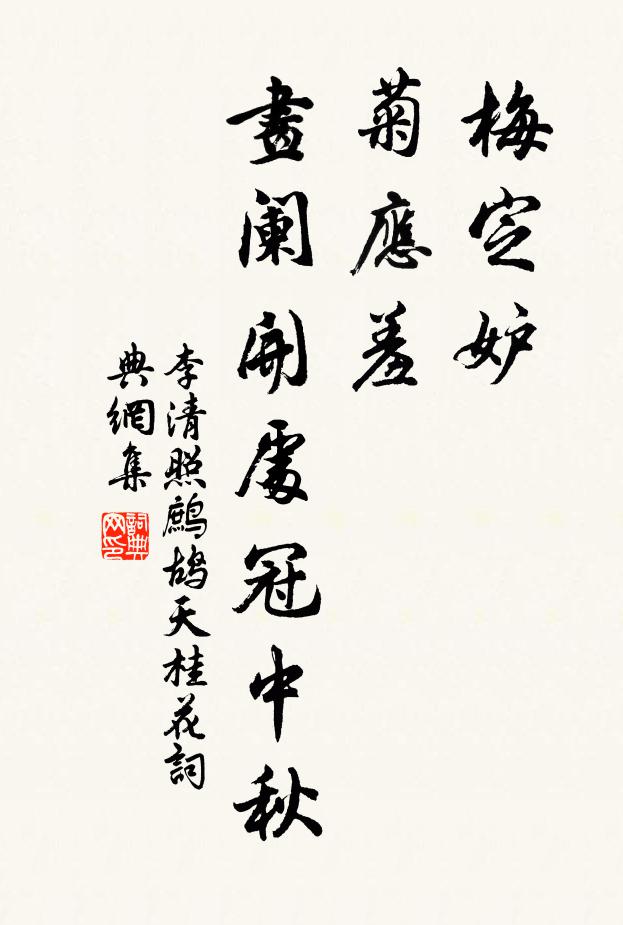 梅定妒
菊應羞
畫闌開處冠中秋
李清照鷓鴣天桂花詞
典網集
詞典
网印